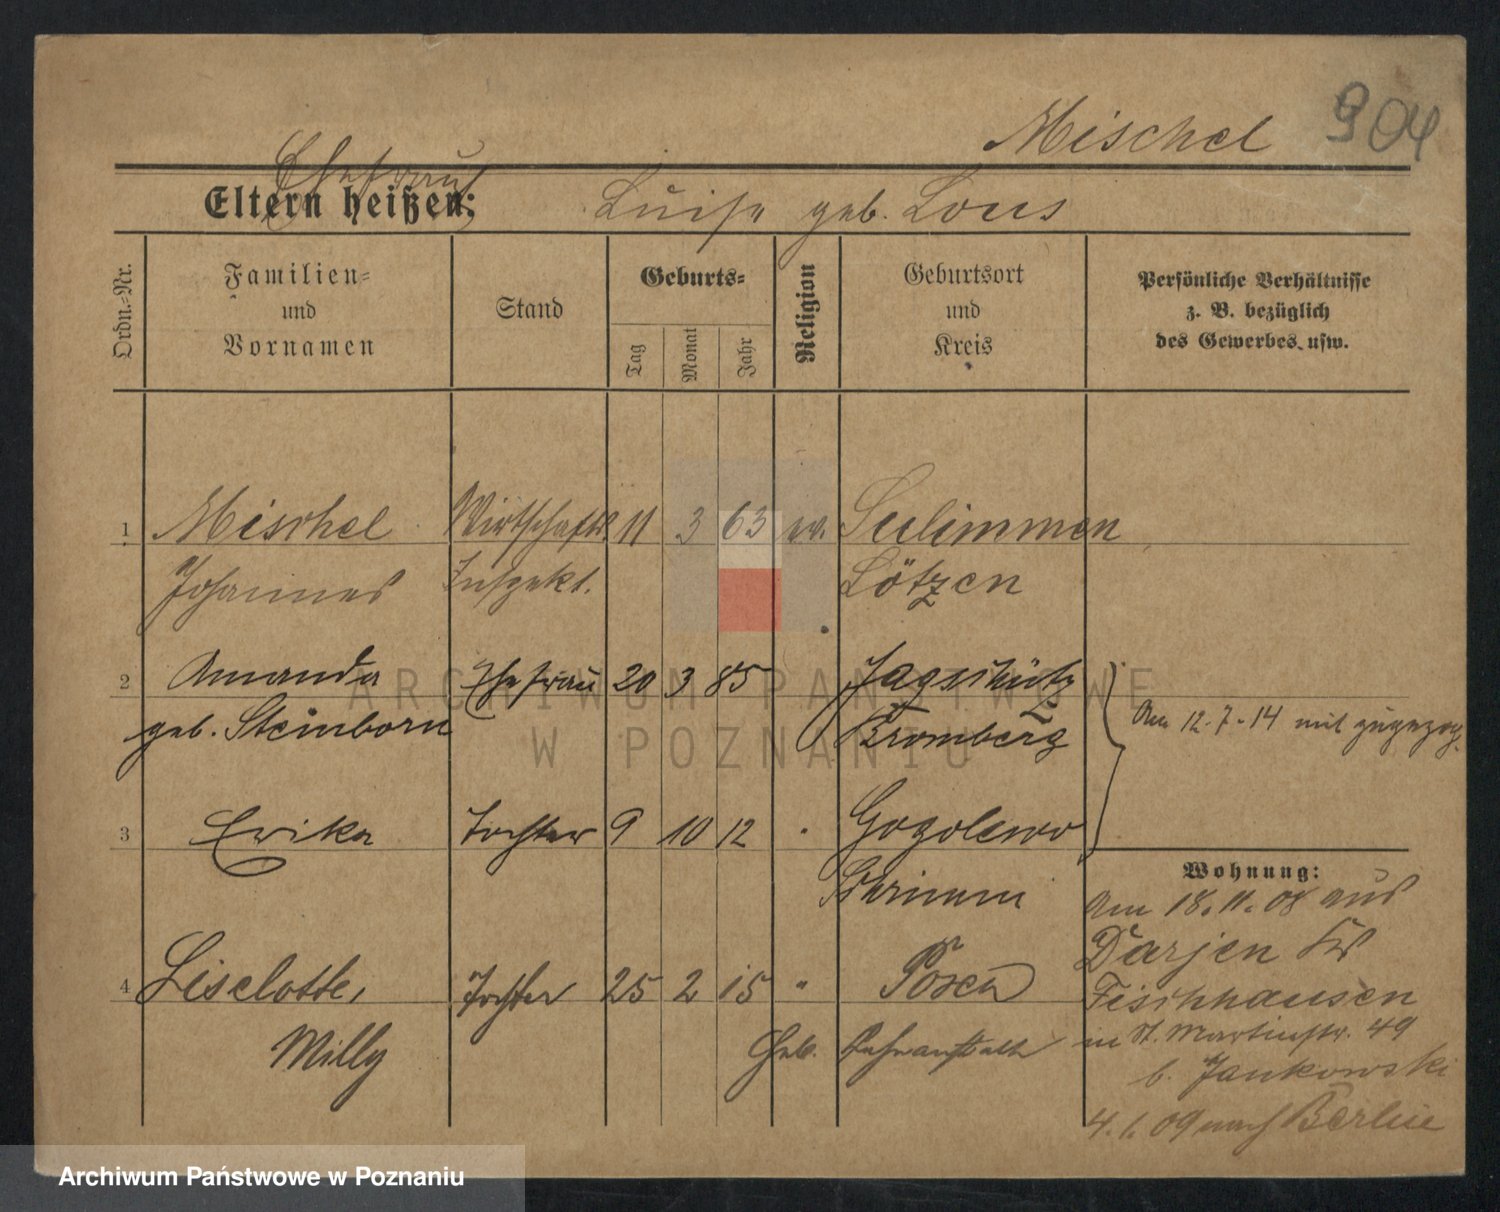 904
Mischel
Ehefrau
Eltern heißen: Luise geb. Lous
Ordn.-Nr.
Familien-
und
Vornamen
Stand
Geburts-
Tag
Monat
Jahr
Religion
Geburtsort
und
Kreis
Persönliche Verhältnisse
z. B. bezüglich
des Gewerbes usw.
1 Mischel Wirtschafts. 11 3 63 ev. Sulimmen
Johannes Inspekt. Lötzen
2 Amanda Ehefrau 20 3 85 Jagdschütz
geb. Steinborn Bromberg
Am 12.7.14 mit zugezog.
3 Erika Tochter 9 10 12 " Gogolewo
Schrimm
Wohnung:
Am 18.11.08 aus
Darjen Krs
Fischhausen
in St. Martinstr. 49
b. Jankowski
4.1.09 nach Berlin
4 Liselotte, Tochter 25 2 15 " Posen
Milly Geb.
ARCHIWUM PAŃSTWOWE
W POZNANIU
Archiwum Państwowe w Poznaniu